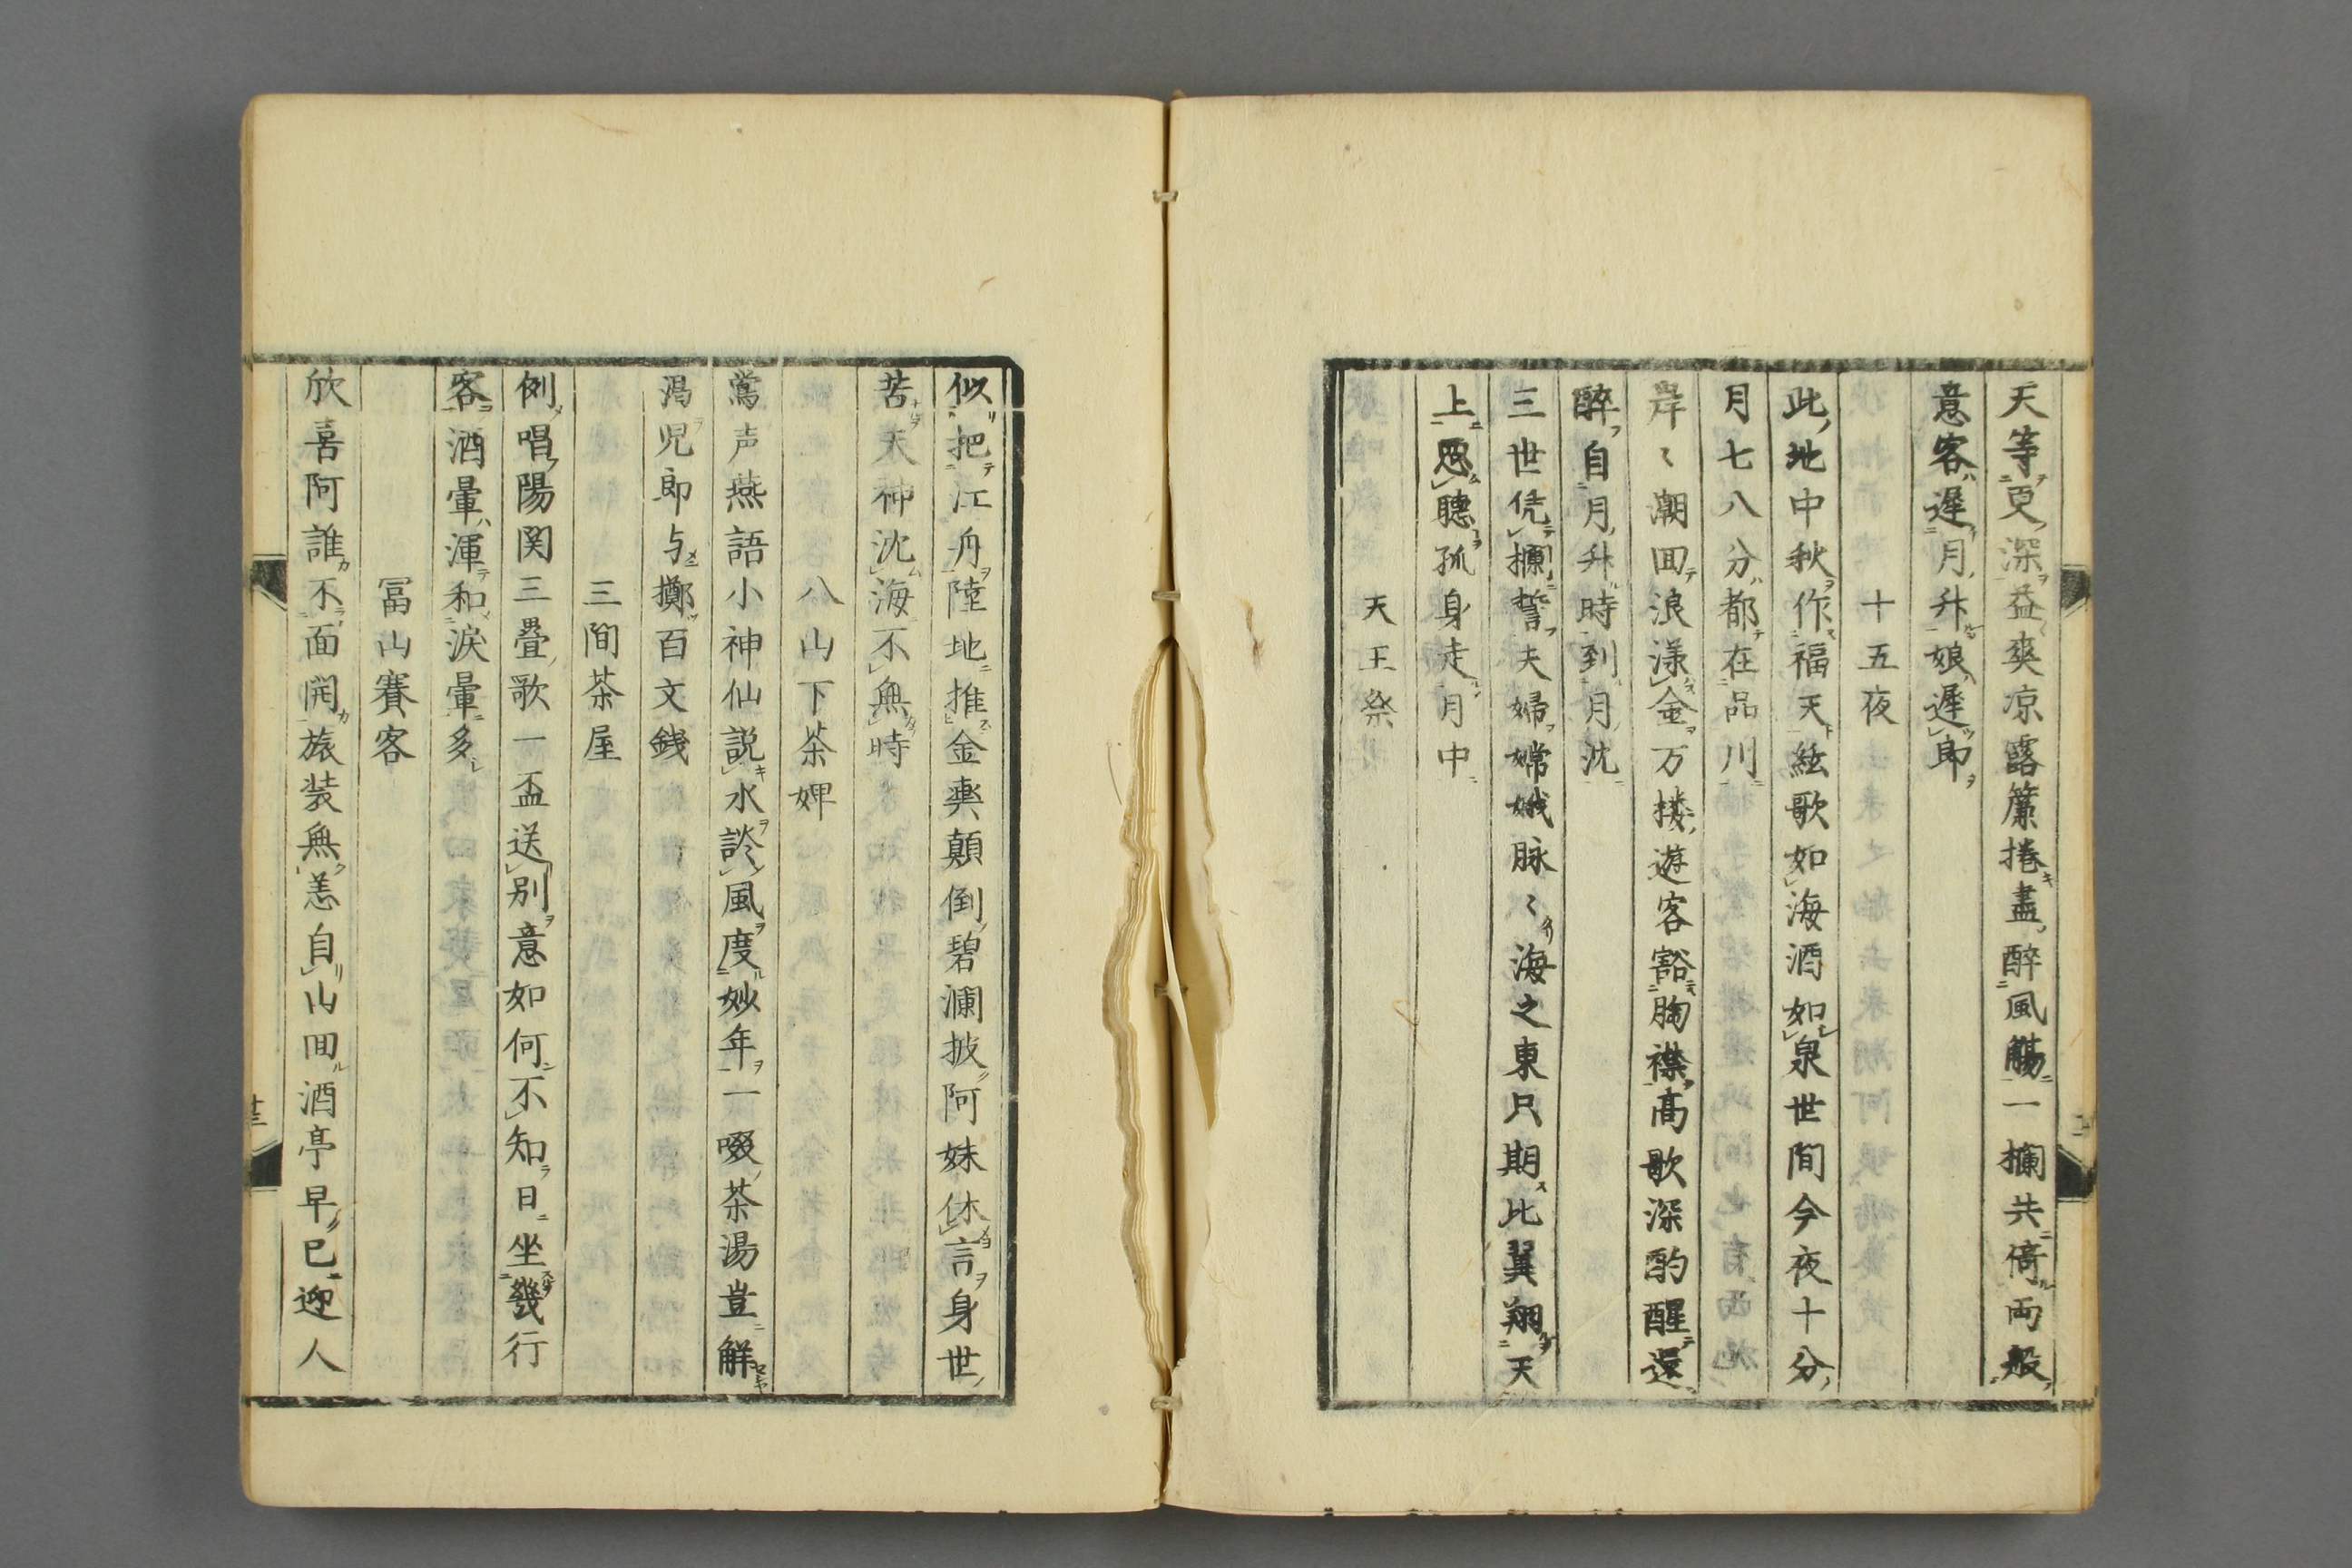 天等更深益爽凉露簾捲盡醉風觴一攔共倚両般
意客遅月升娘遅郎
十五夜
此地中秋作福天絃歌如海酒如泉世間今夜十分
月七八分都在品川
岸〻潮回浪漾金万搂遊客豁胸襟高歌深酌醒還
醉自月升時到月沈
三世凭攔誓夫婦嫦娥脉〻海之東只期比翼翔天
上忍聴孤身走月中
天王祭
似把江舟陸地推金輿顛倒碧瀾披阿妹休言身世
苦天神沈海不無時
八山下茶婢
鶯声燕語小神仙説水談風度妙年一啜茶湯豈解
渇児郎与擲百文銭
三間茶屋
例唱陽関三疊歌一盃送別意如何不知日坐幾行
客酒暈渾和淚暈多
冨山賽客
欣喜阿誰不面開旅装無恙自山回酒亭早已迎人